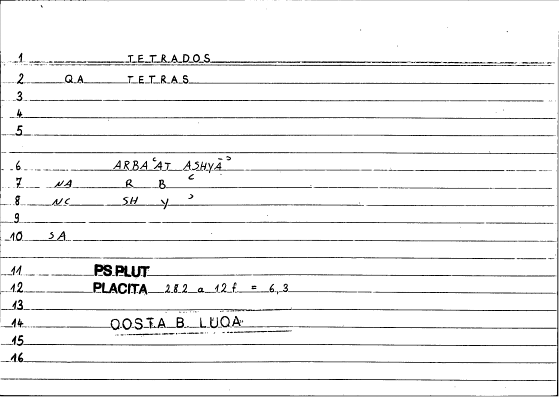 1 TETRADOS
2 QA TETRAS
3
4
5
6 ARBAʿAT ASHYĀʾ
7 NA R B ʿ
8 NC SH Y ʾ
9
10 SA
11 PS.PLUT
12 PLACITA 282 a 12f = 6,3
13
14 QOSTA B. LUQA
15
16